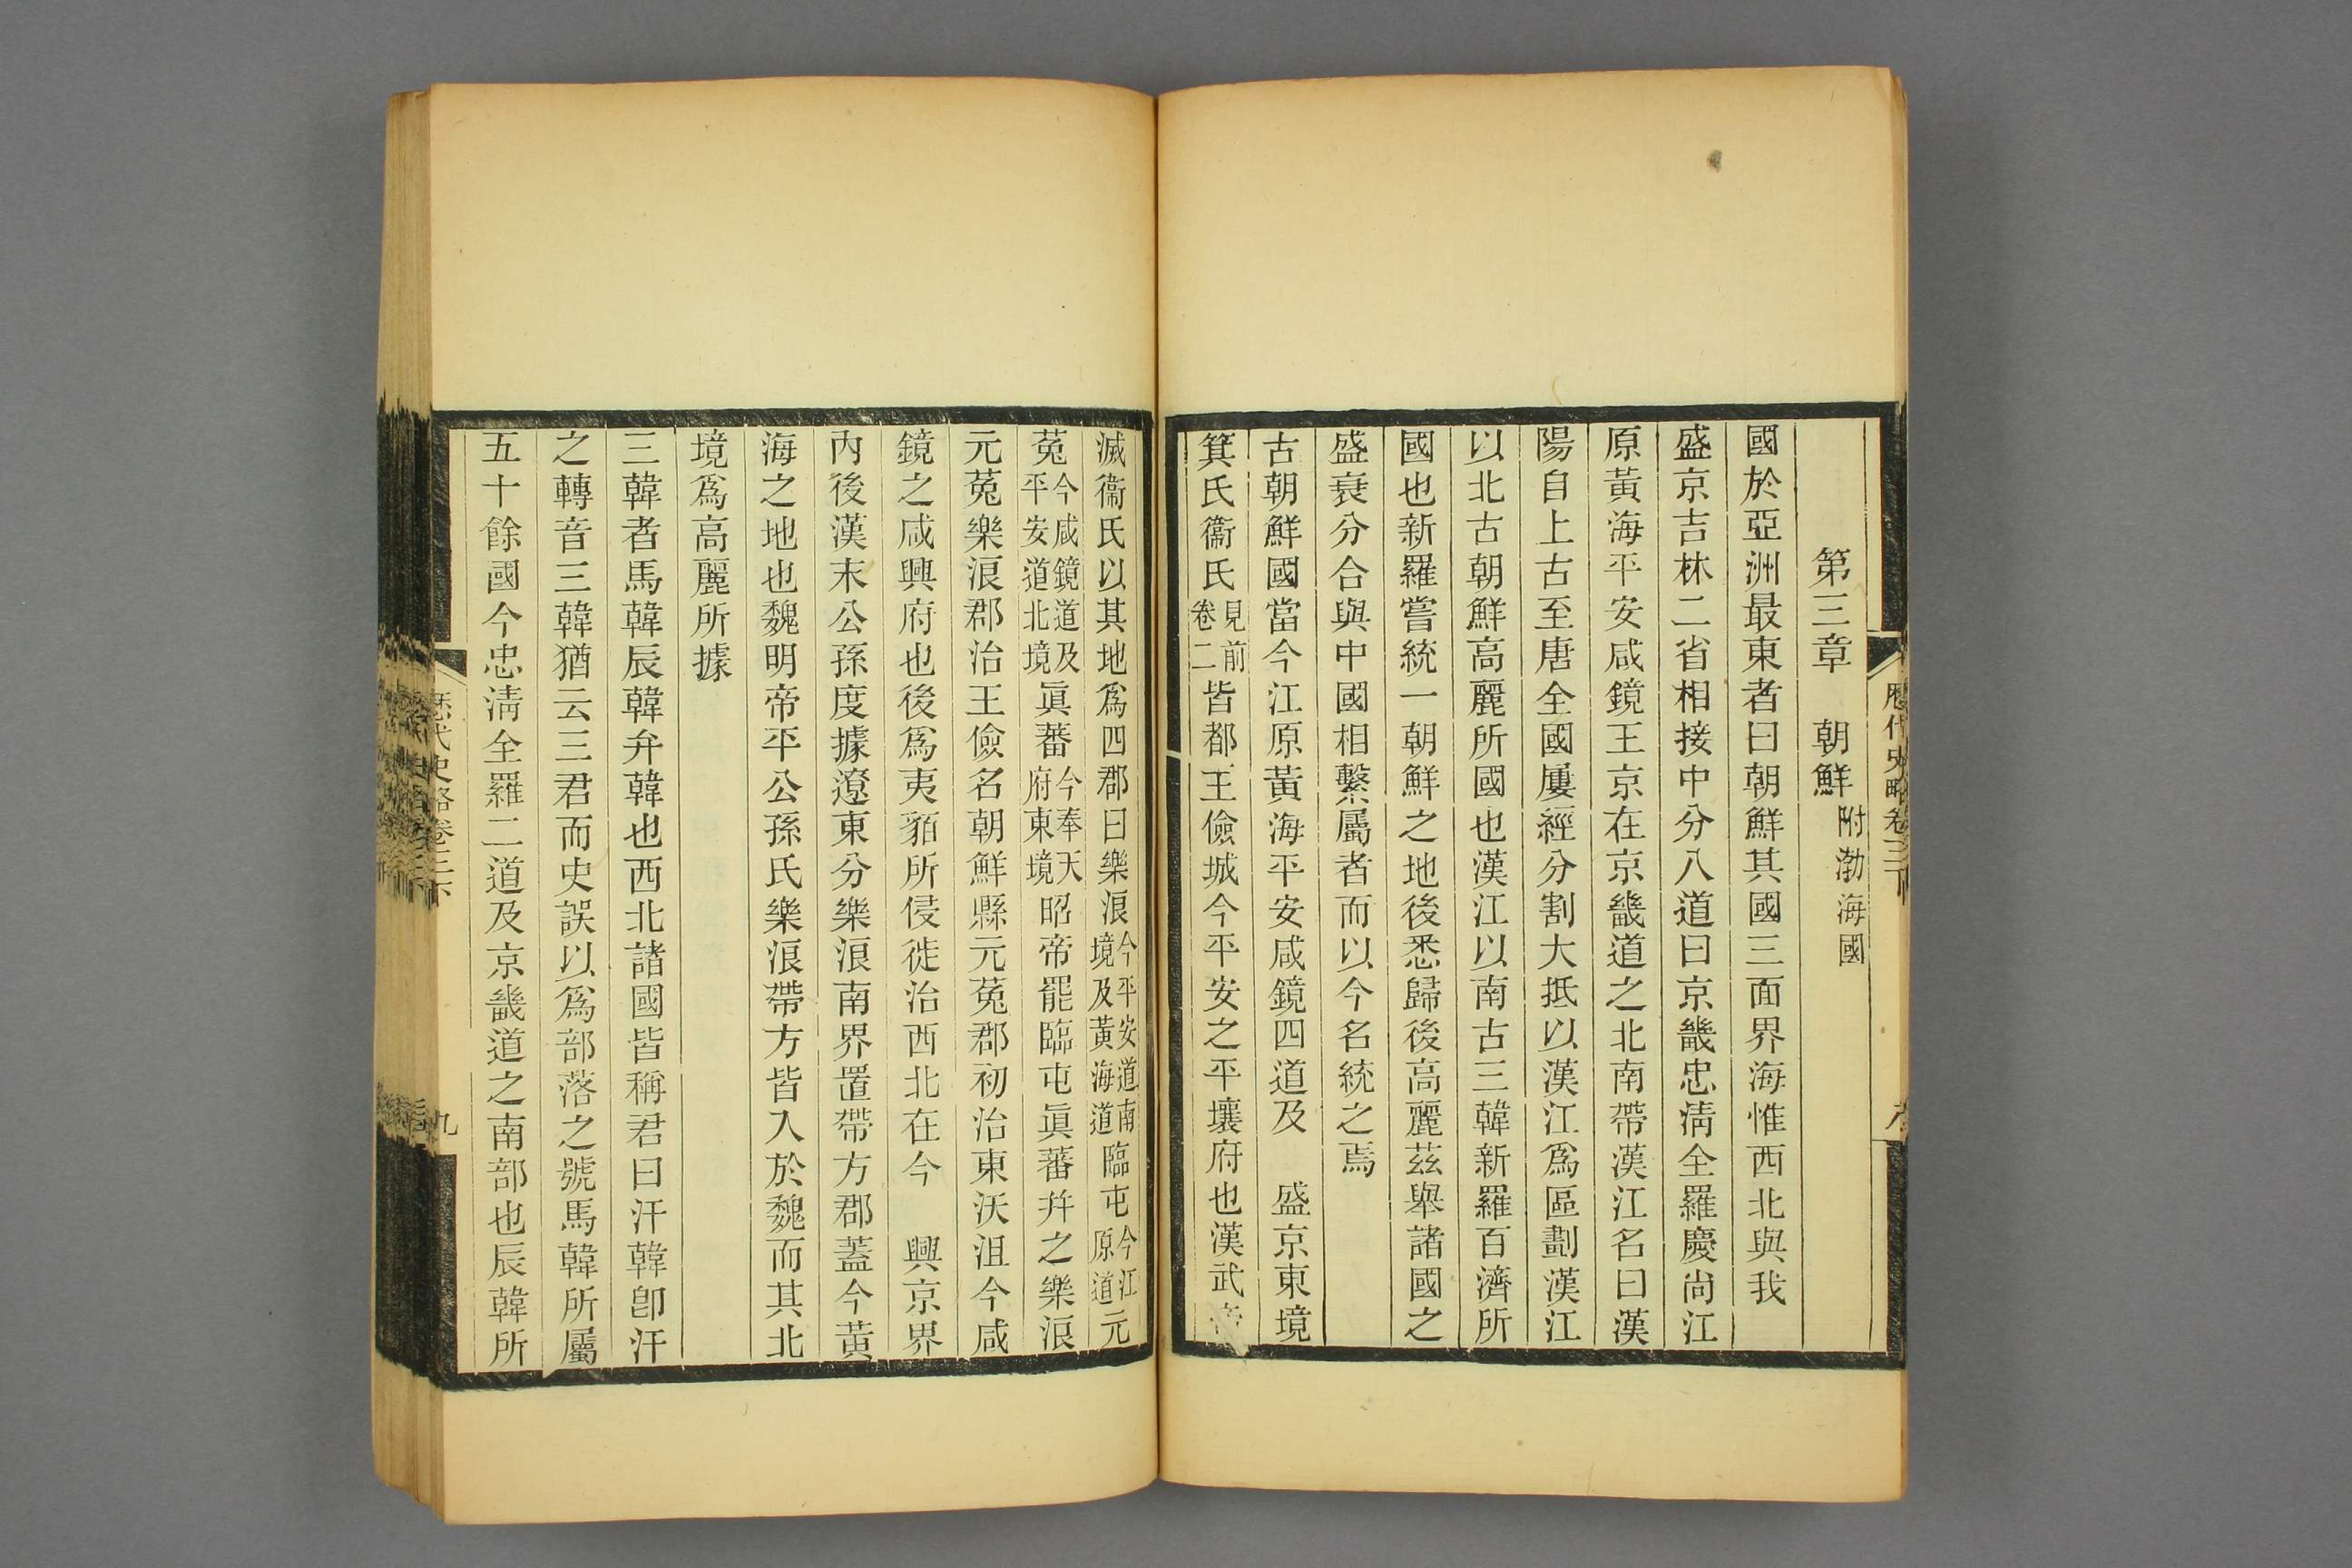 歷代史略卷三下
第三章　朝鮮 附渤海國
國於亞洲最東者曰朝鮮其國三面界海惟西北與我
盛京吉林二省相接中分八道曰京畿忠淸全羅慶尙江
原黃海平安咸鏡王京在京畿道之北南帶漢江名曰漢
陽自上古至唐全國屢經分割大抵以漢江爲區劃漢江
以北古朝鮮高麗所國也漢江以南古三韓新羅百濟所
國也新羅嘗統一朝鮮之地後悉歸後高麗茲舉諸國之
盛衰分合與中國相繫屬者而以今名統之焉
古朝鮮國當今江原黃海平安咸鏡四道及　盛京東境
箕氏衞氏見前卷二皆都王儉城今平安之平壤府也漢武
滅衞氏以其地爲四郡曰樂浪今平安道南境及黃海道臨屯今江原道元
菟今咸鏡道及平安道北境眞蕃今奉天府東境昭帝罷臨屯眞蕃幷之樂浪
元菟樂浪郡治王儉名朝鮮縣元菟郡初治東沃沮今咸
鏡之咸興府也後爲夷貊所侵徙治西北在今　興京界
內後漢末公孫度據遼東分樂浪南界置帶方郡蓋今黃
海之地也魏明帝平公孫氏樂浪帶方皆入於魏而其北
境爲高麗所據
三韓者馬韓辰韓弁韓也西北諸國皆稱君曰汗韓卽汗
之轉音三韓猶云三君而史誤以爲部落之號馬韓所屬
五十餘國今忠淸全羅二道及京畿道之南部也辰韓所
歷代史略卷三下
九